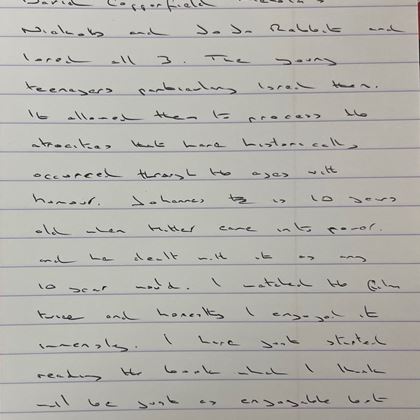 David Copperfield
Nicholas and Jo Jo Rabbit and
loved all 3. The young
teenagers particularly loved them.
It allowed them to process the
atrocities that have historically
occurred through the ages with
humour. Johannes is 10 years
old when Hitler came into power.
and he dealt with it as any
10 year would. I watched the film
twice and honestly I enjoyed it
immensely. I have just started
reading the book which I think
will be just as enjoyable but